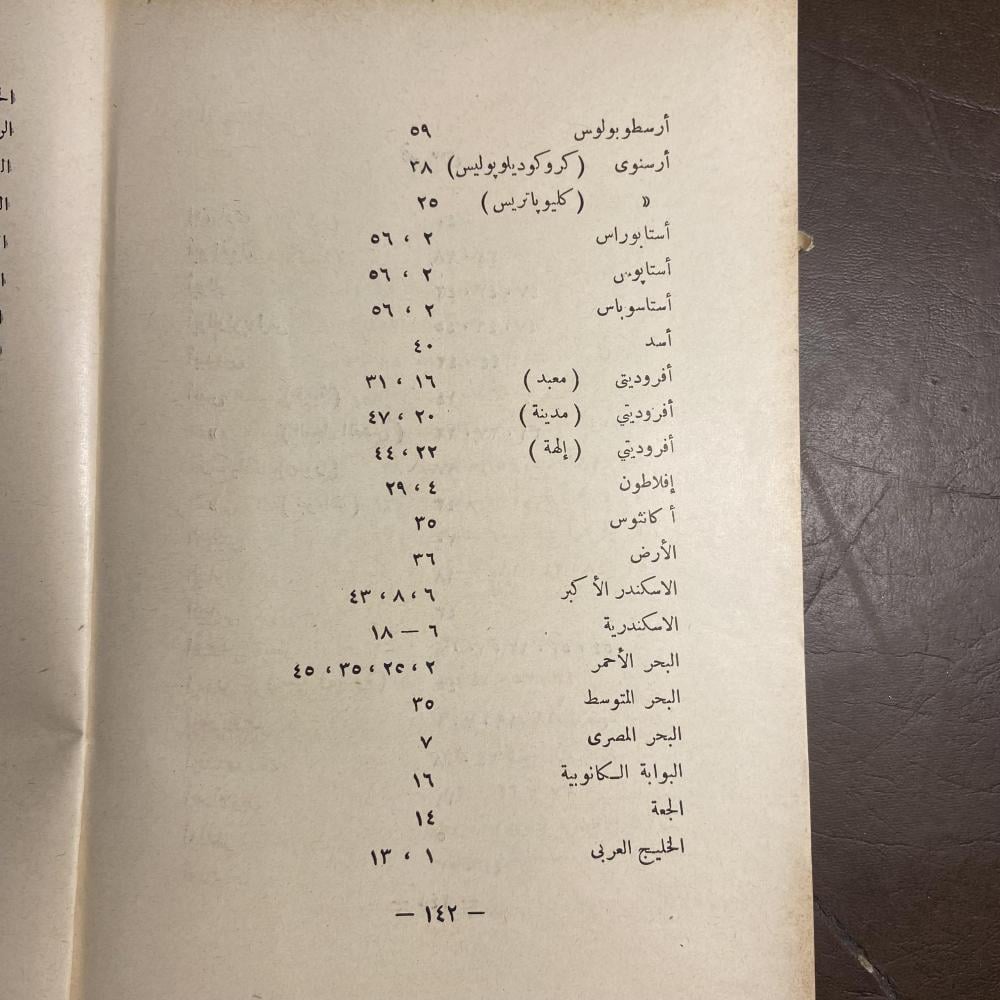 أرسطوبولوس ٥٩
أرسنوى (كروكوديلوپوليس) ٣٨
« (كليوپاتريس) ٢٥
أستابوراس ٢ ، ٥٦
أستاپوس ٢ ، ٥٦
أستاسوباس ٢ ، ٥٦
أسد ٤٠
أفروديتى (معبد) ١٦ ، ٣١
أفروديتي (مدينة) ٢٠ ، ٤٧
أفروديتي (إلهة) ٢٢ ، ٤٤
إفلاطون ٤ ، ٢٩
أكانثوس ٣٥
الأرض ٣٦
الاسكندر الأكبر ٦ ، ٨ ، ٤٣
الاسكندرية ٦ — ١٨
البحر الأحمر ٢ ، ٢٥ ، ٣٥ ، ٤٥
البحر المتوسط ٣٥
البحر المصرى ٧
البوابة الكانوبية ١٦
الجعة ١٤
الخليج العربى ١ ، ١٣
— ١٤٢ —